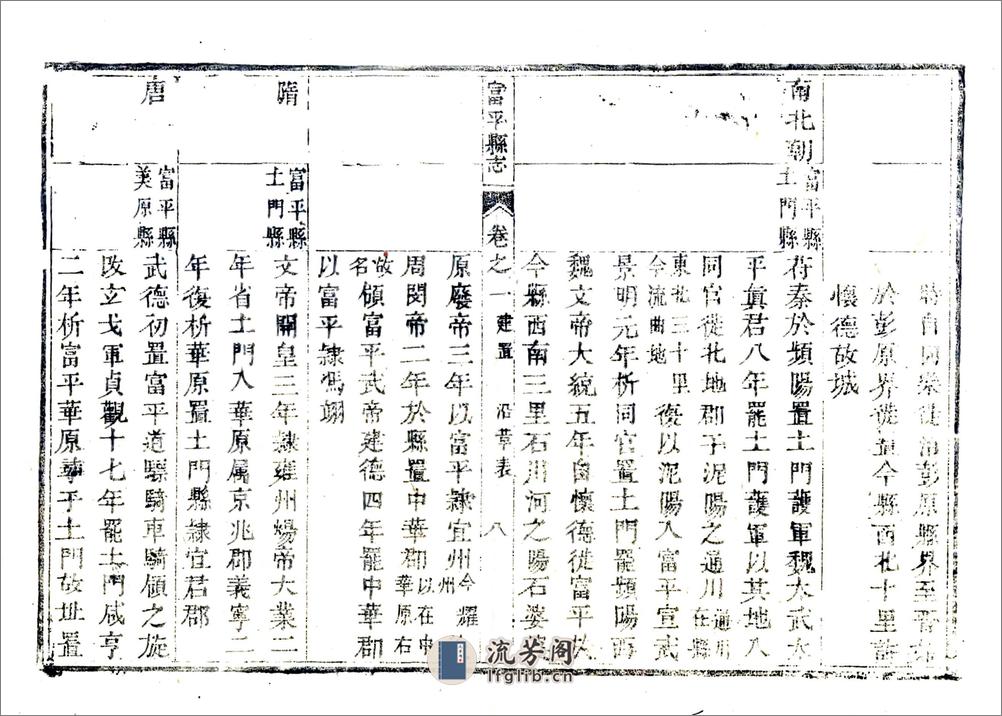 特自同樂徙治彭原縣界至晉
於彭原界徙置今縣西北十里
懷德故城
南北朝
富平縣
土門縣
苻秦於頻陽置土門護軍魏太武太
平眞君八年罷土門護軍以其地入
同官徙北地郡于泥陽之通川通川在縣
東北三十里今流曲地復以泥陽入富平宣武
景明元年析同官置土門罷頻陽西
魏文帝大統五年自懷德徙富平於
今縣西南三里石川河之陽石婆
富平縣志
卷之一
建置
沿革表
八
原廢帝三年以富平隸宜州今耀州
周閔帝二年於縣置中華郡以在中華原右
故名領富平武帝建德四年罷中華郡
以富平隸馮翊
隋
富平縣
土門縣
文帝開皇三年隸雍州煬帝大業二
年省土門入華原属京兆郡義寧二
年復析華原置土門縣隸宜君郡
唐
富平縣
美原縣
武德初置富平道驃騎車騎領之旋
改立戈軍貞觀十七年罷土門咸亨
二年析富平華原 于土門故址置
流芳阁
lfglib.cn